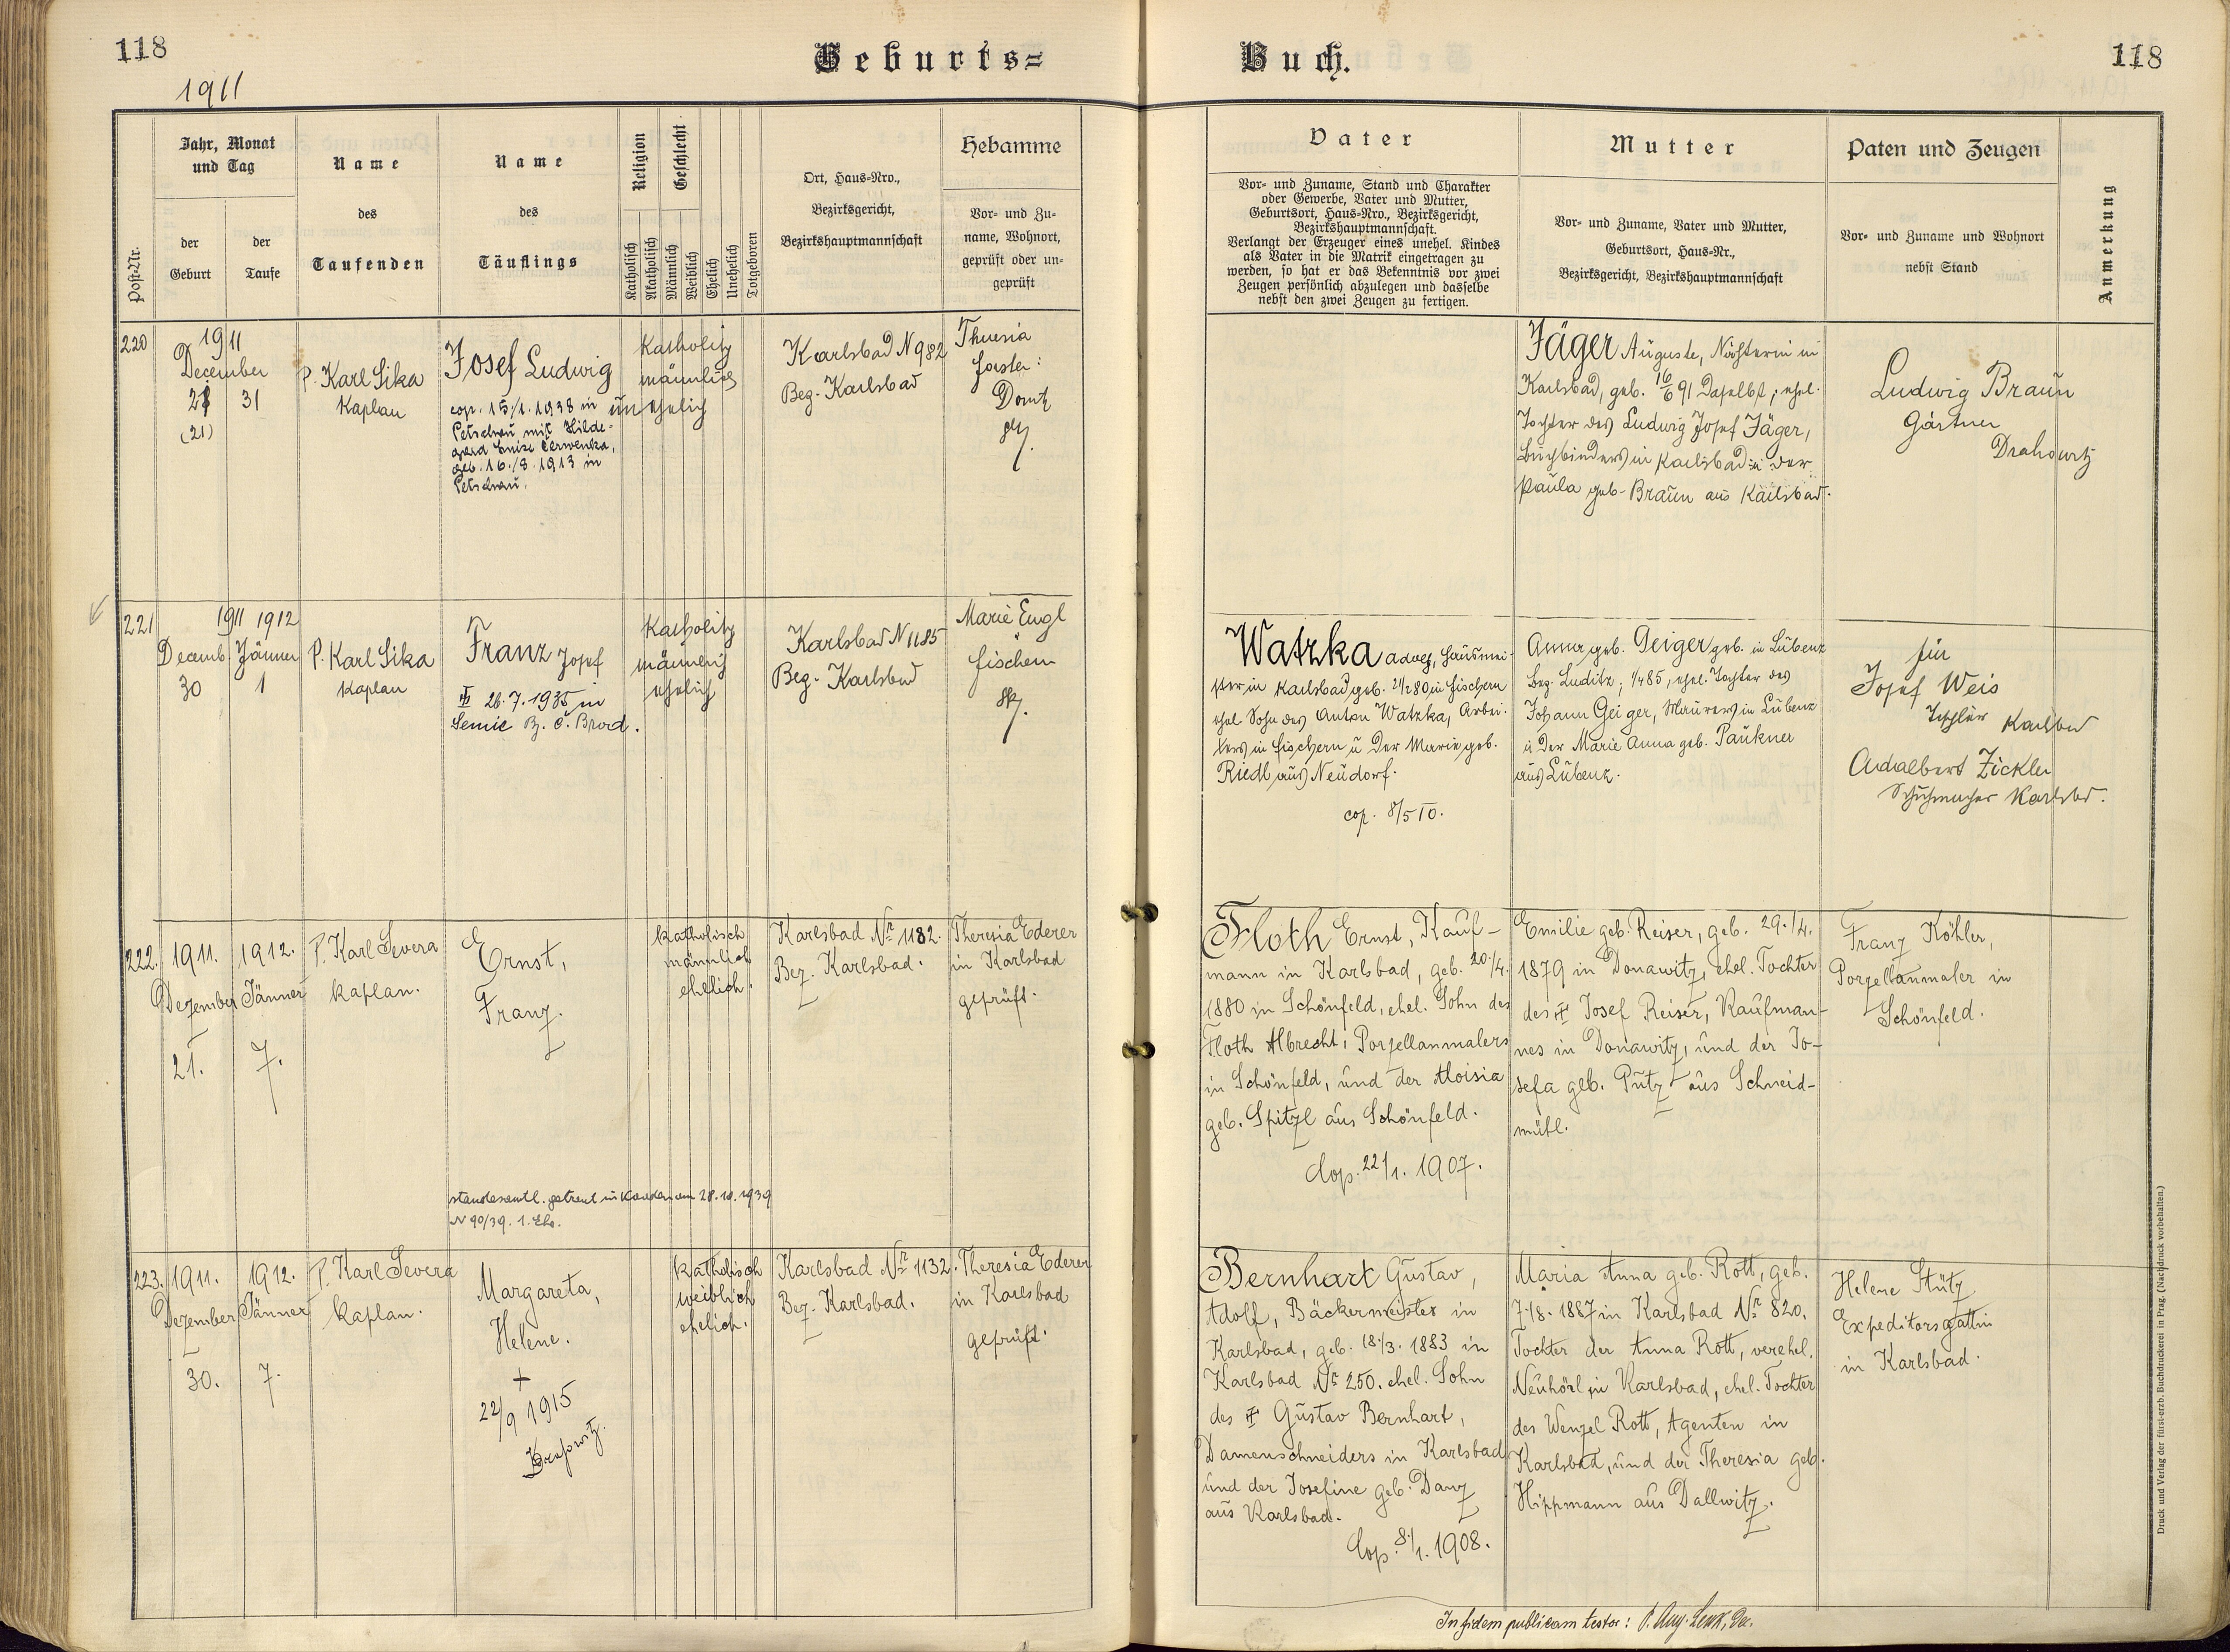 118
Geburts=
Buch.
118
1911
Post-Nr.
Jahr, Monat
und Tag
der
Geburt
der
Taufe
Name
des
Taufenden
Name
des
Täuflings
Religion
Geschlecht
Katholisch
Akatholisch
Männlich
Weiblich
Ehelich
Unehelich
Totgeboren
Ort, Haus=Nro.,
Bezirksgericht,
Bezirkshauptmannschaft
Hebamme
Vor= und Zu=
name, Wohnort,
geprüft oder un=
geprüft
Vater
Vor= und Zuname, Stand und Charakter
oder Gewerbe, Vater und Mutter,
Geburtsort, Haus=Nro., Bezirksgericht,
Bezirkshauptmannschaft.
Verlangt der Erzeuger eines unehel. Kindes
als Vater in die Matrik eingetragen zu
werden, so hat er das Bekenntnis vor zwei
Zeugen persönlich abzulegen und dasselbe
nebst den zwei Zeugen zu fertigen.
Mutter
Vor= und Zuname, Vater und Mutter,
Geburtsort, Haus=Nr.,
Bezirksgericht, Bezirkshauptmannschaft
Paten und Zeugen
Vor= und Zuname und Wohnort
nebst Stand
Anmerkung
220
1911
December
31
(21)
P. Karl Sika
Kaplan
Josef Ludwig
cop. 15./1. 1938 in
Petschau mit Hilde-
gard Luise Červenka,
geb. 16./8. 1913 in
Petschau.
Katholisch
männlich
unehelich
Karlsbad N 982
Bez. Karlsbad
Theresia
Forster
gpr.
Jäger Auguste, Nähterin in
Karlsbad, geb. 16/6 91 daselbst, ehel.
Tochter des Ludwig Josef Jäger,
Buchbinders in Karlsbad u der
Paula geb. Braun aus Karlsbad.
Ludwig Braun
Gärtner
Drahowitz
221
1911 1912
Decemb. Jänner
30 1
P. Karl Sika
Kaplan
Franz Josef
26.7.1935 in
Semic B. Č. Brod.
Katholisch
männlich
ehelich
Karlsbad N 1185
Bez. Karlsbad
Marie Engl
Fischern
gpr.
Watzka Adolf, Hausmei-
ster in Karlsbad geb. 21/2 80 in Fischern
ehel. Sohn des Anton Watzka, Arbei-
ters in Fischern u der Marie geb.
Riedl aus Neudorf.
cop. 8/5 10.
Anna geb. Geiger geb. in Lubenz
Bez. Luditz; 1/4 85, ehel. Tochter des
Johann Geiger, Maurers in Lubenz
u der Marie Anna geb. Paukner
aus Lubenz.
für
Josef Weis
Tischler Karlsbad
Adalbert Zickler
Schuhmacher Karlsbd.
222.
1911.
Dezember
21.
1912.
Jänner
7.
P. Karl Severa
Kaplan.
Ernst,
Franz.
standesamtl. getraut in Kaaden am 28.10.1939
N 90/39. 1. Ehe.
katholisch
männlich
ehelich.
Karlsbad Nr 1182.
Bez. Karlsbad.
Theresia Ederer
in Karlsbad
geprüft.
Floth Ernst, Kauf-
mann in Karlsbad, geb. 20./4.
1880 in Schönfeld, ehel. Sohn des
Floth Albrecht, Porzellanmalers
in Schönfeld, und der Aloisia
geb. Spitzl aus Schönfeld.
Cop. 22/1. 1907.
Emilie geb. Reiser, geb. 29./4.
1879 in Donawitz, ehel. Tochter
des † Josef Reiser, Kaufman-
nes in Donawitz, und der Jo-
sefa geb. Putz aus Schneid-
mühl.
Franz Köhler,
Porzellanmaler in
Schönfeld.
223.
1911.
Dezember
30.
1912.
Jänner
7.
P. Karl Severa
Kaplan.
Margareta,
Helene.
+
22/9 1915
katholisch
weiblich
ehelich.
Karlsbad Nr 1132.
Bez. Karlsbad.
Theresia Ederer
in Karlsbad
geprüft.
Bernhart Gustav,
Adolf, Bäckermeister in
Karlsbad, geb. 18./3. 1883 in
Karlsbad Nr 250. ehel. Sohn
des † Gustav Bernhart,
Damenschneiders in Karlsbad
und der Josefine geb. Danz
aus Karlsbad.
Cop. 8./1. 1908.
Maria Anna geb. Rott, geb.
7./8. 1887 in Karlsbad Nr 820.
Tochter der Anna Rott, verehel.
Neuhörl in Karlsbad, ehel. Tochter
des Wenzel Rott, Agenten in
Karlsbad, und der Theresia geb.
Hippmann aus Dallwitz.
Helene Stütz
Expeditorsgattin
in Karlsbad.
In fidem publicam testor: P. Aug. Lenk, Dec.
Druck und Verlag der fürst-erzb. Buchdruckerei in Prag. (Nachdruck vorbehalten.)